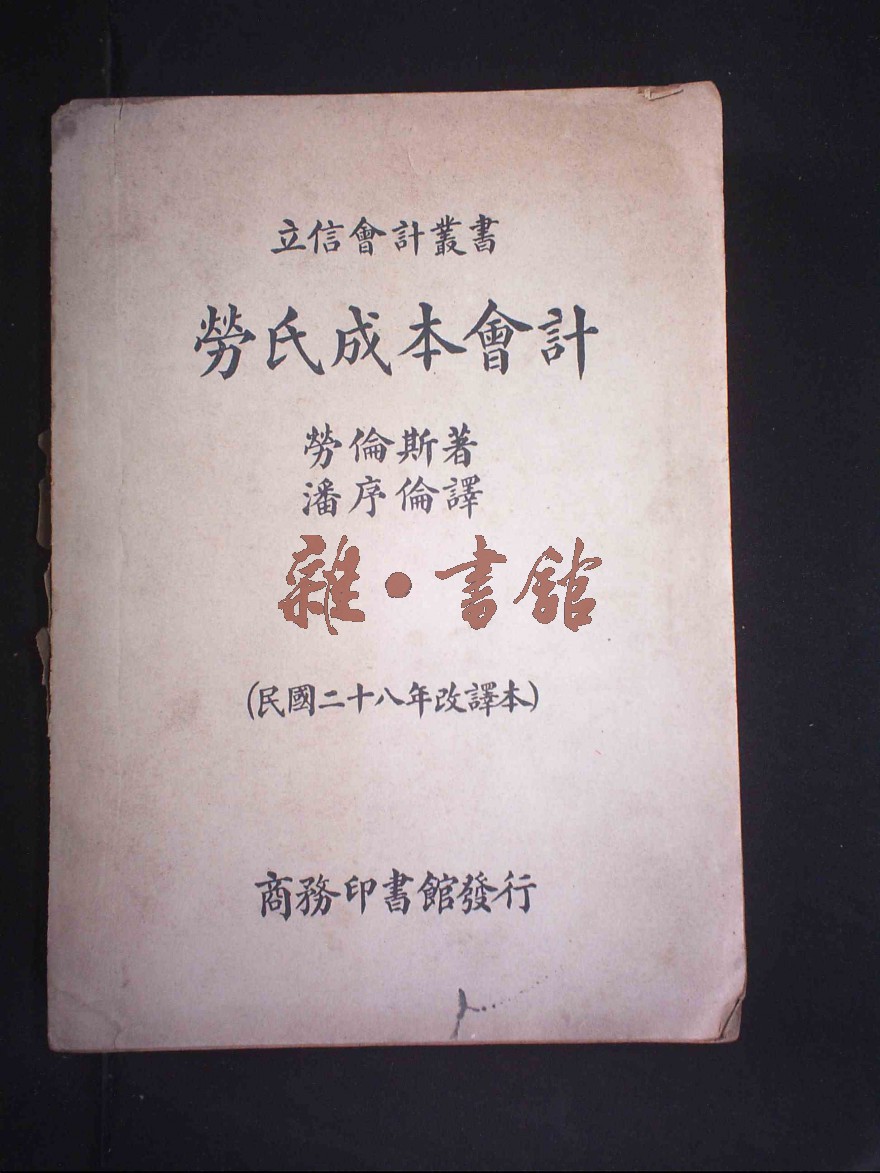 立信會計叢書
勞氏成本會計
勞倫斯著
潘序倫譯
雜·書館
(民國二十八年改譯本)
商務印書館發行